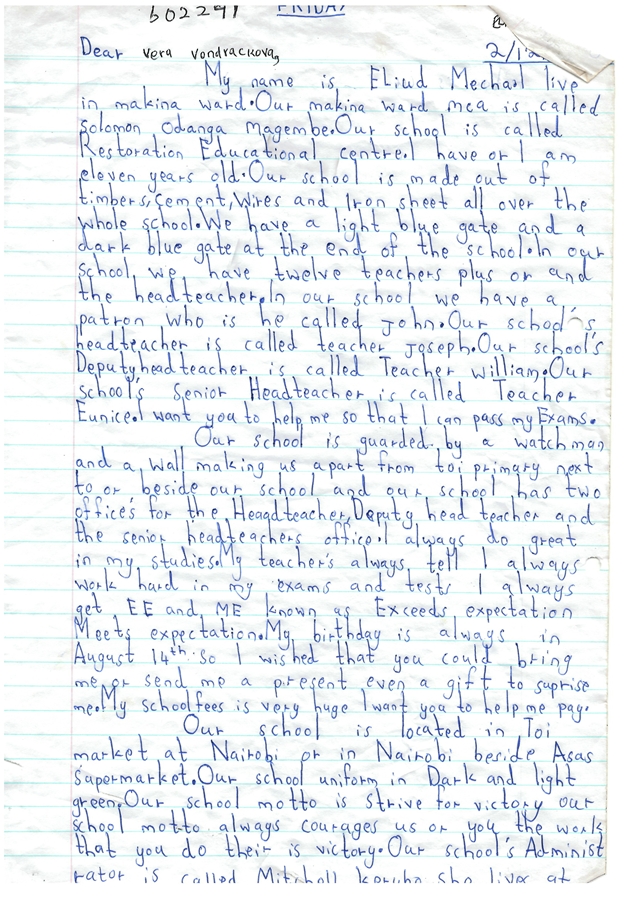 602291 FRIDAY
Dear Vera Vondrackova, 2/12
My name is Eliud Mecharl live
in makina ward.Our makina ward mca is called
Solomon Odanga Magembe.Our school is called
Restoration Educational centre.I have or I am
eleven years old.Our school is made out of
timbers,Cement,Wires and Iron sheet all over the
whole school.We have a light blue gate and a
dark blue gate at the end of the school.In our
school, we have twelve teachers plus or and
the headteacher.In our school we have a
patron who is he called John.Our school's
headteacher is called teacher Joseph.Our school's
Deputyheadteacher is called Teacher William.Our
school's Senior Headteacher is called Teacher
Eunice.I want you to help me so that I can pass my Exams.
Our school is guarded by a watchman
and a wall making us apart from toi primary next
to or beside our school and our school has two
office's for the Heaqdteacher,Deputy head teacher and
the senior headteachers office.I always do great
in my studies.My teacher's always tell I always
work hard in my exams and tests I always
get EE and ME known as Exceeds expectation
Meets expectation.My birthday is always in
August 14th.So I wished that you could bring
me or send me a present even a gift to suprise
me.My schoolfees is very huge I want you to help me pay.
Our school is located in Toi
market at Nairobi or in Nairobi beside Asas
Supermarket.Our school uniform in Dark and light
green.Our school motto is Strive for victory our
school motto always courages us or you the work
that you do their is victory.Our school's Administ
rator is called Mitchell she lives at